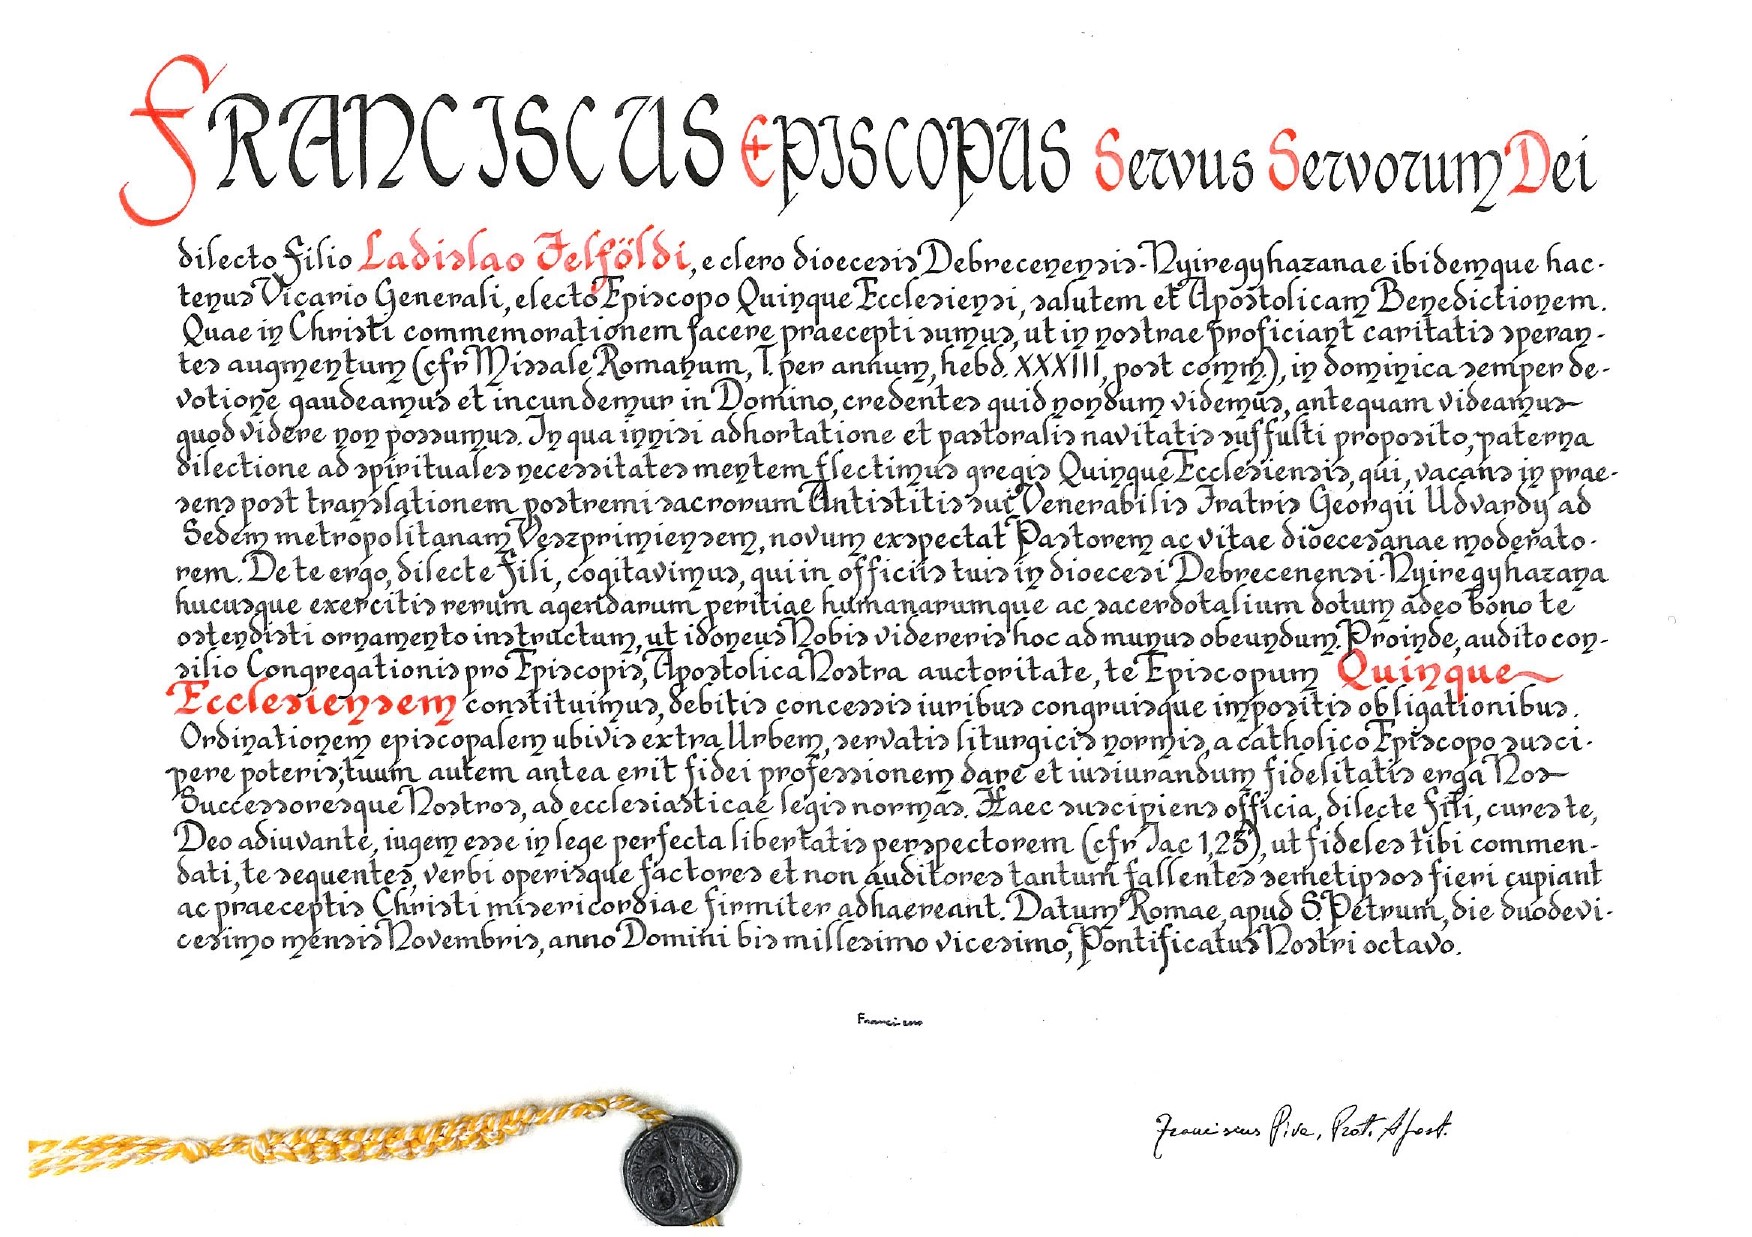 FRANCISCUS EPISCOPUS Servus Servorum Dei
dilecto Filio Ladislao Felföldi, e clero dioecesis Debrecenensis-Nyiregyhazanae ibidemque hac-
tenus Vicario Generali, electo Episcopo Quinque Ecclesiensi, salutem et Apostolicam Benedictionem.
Quae in Christi commemorationem facere praecepti sumus, ut in nostrae proficiant caritatis speran-
tes augmentum (cfr Missale Romanum, T. per annum, hebd. XXXIII, post comm.), in dominica semper de-
votione gaudeamus et incundemur in Domino, credentes quid nondum videmus, antequam videamus
quod videre non possumus. In qua innisi adhortatione et pastoralis navitatis suffulti proposito, paterna
dilectione ad spirituales necessitates mentem flectimus gregis Quinque Ecclesiensis, qui, vacans in prae-
sens post translationem postremi sacrorum Antistitis sui Venerabilis Fratris Georgii Udvardy ad
Sedem metropolitanam Veszprimiensem, novum exspectat Pastorem ac vitae dioecesanae moderato-
rem. De te ergo, dilecte Fili, cogitavimus, qui in officiis tuis in dioecesi Debrecenensi-Nyiregyhazana
hucusque exercitis rerum agendarum peritiae humanarumque ac sacerdotalium dotum adeo bono te
ostendisti ornamento instructum, ut idoneus Nobis videreris hoc ad munus obeundum. Proinde, audito con-
silio Congregationis pro Episcopis, Apostolica Nostra auctoritate, te Episcopum Quinque
Ecclesiensem constituimus, debitis concessis iuribus congruisque impositis obligationibus.
Ordinationem episcopalem ubivis extra Urbem, servatis liturgicis normis, a catholico Episcopo susci-
pere poteris; tuum autem antea erit fidei professionem dare et iusiurandum fidelitatis erga Nos
Successoresque Nostros, ad ecclesiasticae legis normas. Haec suscipiens officia, dilecte Fili, cures te,
Deo adiuvante, iugem esse in lege perfecta libertatis perspectorem (cfr Iac 1,25), ut fideles tibi commen-
dati, te sequentes, verbi operisque factores et non auditores tantum fallentes semetipsos fieri cupiant
ac praeceptis Christi misericordiae firmiter adhaereant. Datum Romae, apud S. Petrum, die duodevi-
cesimo mensis Novembris, anno Domini bis millesimo vicesimo, Pontificatus Nostri octavo.
Franciscus
Franciscus Piva, Prot. Apost.